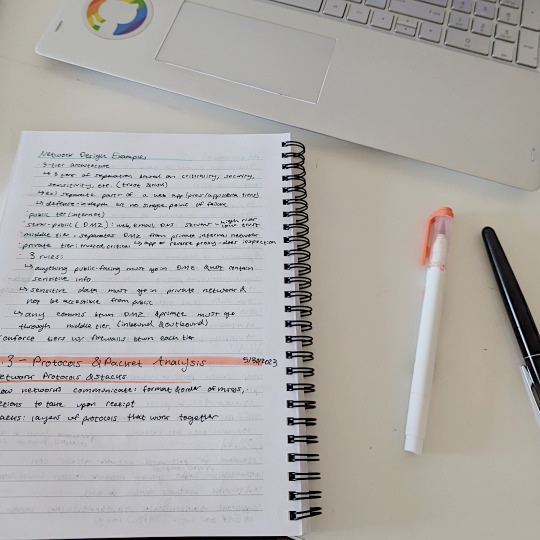 Network Design Examples
· 3-tier architecture
↳ 3 tiers of separation based on criticality, security,
sensitivity, etc. (trust &risk)
↳ ex) separate parts of a web app (pres/app/data tiers)
↳ defense-in-depth w/ no single point of failure
public tier (internet)
semi-public (DMZ): web, email, DNS servers - high risk
low trust
middle tier - separates DMZ from private internal network
private tier: most critical ↳ app or reverse proxy - does inspection
· 3 rules:
↳ anything public-facing must go in DMZ &not contain
sensitive info
↳ sensitive data must go in private network &
not be accessible from public
↳ any comms btwn DMZ &private must go
through middle tier (inbound &outbound)
enforce tiers w/ firewalls btwn each tier
.3 - Protocols &Packet Analysis
etwork Protocols &Stacks
ow networks communicate: format &order of msgs,
ctions to take upon receipt
tacks: layers of protocols that work together